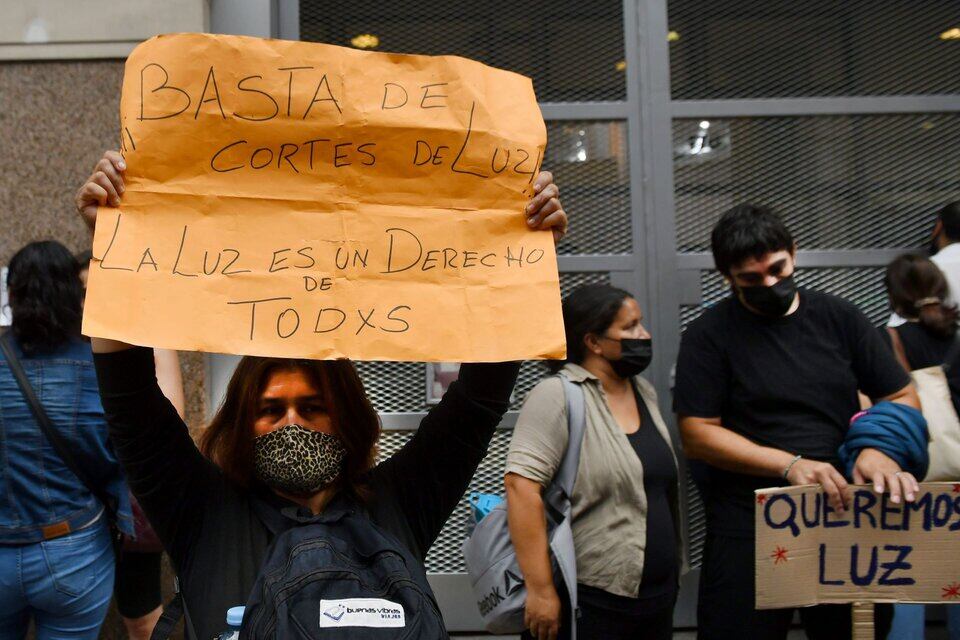 BASTA DE
¡¡ CORTES DE LUZ!!
LA LUZ ES UN DERECHO
DE
TODXS
QUEREMOS
LUZ
Reebok
buenas vibras
VIAJES